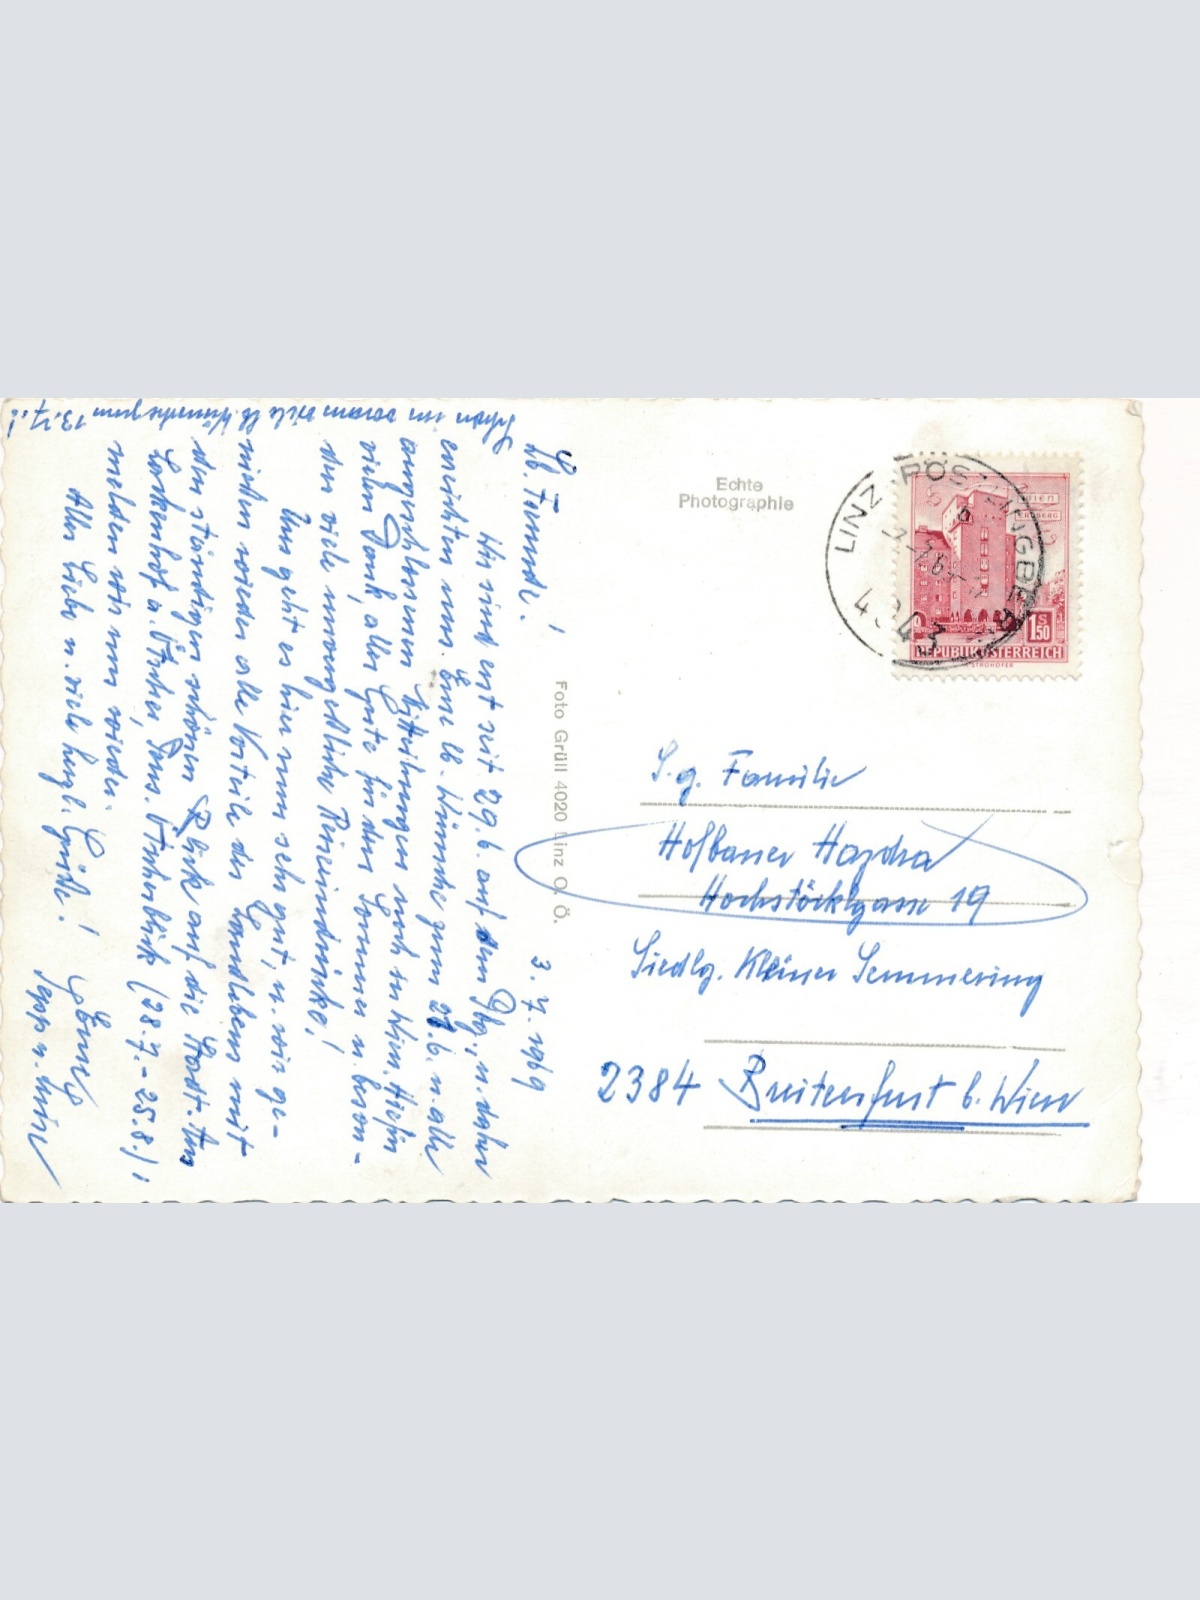 Schon im voraus viele lb. Wünsche zum 13.7.!
3.7.1969
Wir sind erst seit 29.6. auf dem Pbg., u. daher
erreichten uns Eure lb. Wünsche zum 27.6. u. alle
angeschlossenen Mitteilungen noch in Wien. Hiefür
vielen Dank, alles Gute für den Sommer u. beson-
ders viele unvergeßliche Reiseeindrücke!
Uns geht es hier nun sehr gut, u. wir ge-
nießen wieder alle Vorteile des Landlebens mit
dem ständigen schönen Blick auf die Stadt. Am
Lackenhof a. Ötscher, Pens. Ötscherblick (28.7.-25.8.)
melden wir uns wieder.
Alles Liebe u. viele herzl. Grüße!
Sepp u.
Echte
Photographie
Foto Grüll 4020 Linz O. Ö.
LINZ-PÖSTLINGBERG
4043
WIEN
ERDBERG
1S50
REPUBLIK ÖSTERREICH
STROHOFER
S. g. Familie
Hofbauer Hajdra
Hochstöcklgasse 19
Siedlg. Kleiner Semmering
2384 Breitenfurt b. Wien